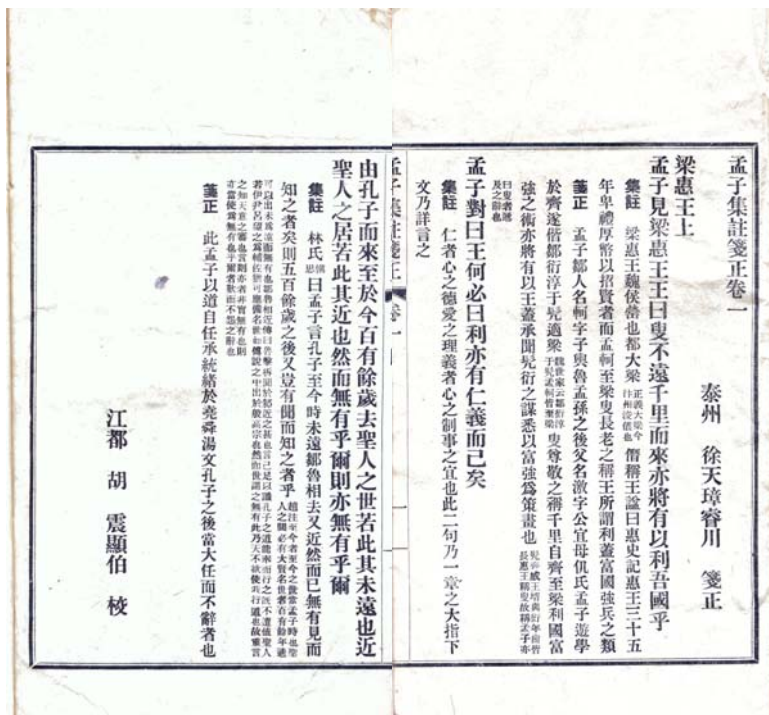 孟子集註箋正卷一
泰州　徐天璋睿川　箋正
梁惠王上
孟子見梁惠王王曰叟不遠千里而來亦將有以利吾國乎
集註　梁惠王魏侯罃也都大梁正義大梁今汴州浚儀也僭稱王諡曰惠史記惠王三十五
年卑禮厚幣以招賢者而孟軻至梁叟長老之稱王所謂利蓋富國強兵之類
箋正　孟子鄒人名軻字子輿魯孟孫之後父名激字公宜母仉氏孟子遊學
於齊遂偕鄒衍淳于髡適梁魏世家云鄒衍淳于髡孟軻皆至梁叟尊敬之稱千里自齊至梁利國富
強之術亦將有以王蓋承聞髡衍之謀悉以富強爲策畫也
孟子對曰王何必曰利亦有仁義而已矣
集註　仁者心之德愛之理義者心之制事之宜也此二句乃一章之大指下
文乃詳言之
孟子集註箋正　卷一　一
由孔子而來至於今百有餘歲去聖人之世若此其未遠也近
聖人之居若此其近也然而無有乎爾則亦無有乎爾
集註　林氏曰孟子言孔子至今時未遠鄒魯相去又近然而已無有見而
知之者矣則五百餘歲之後又豈有聞而知之者乎
箋正　此孟子以道自任承統緒於堯舜湯文孔子之後當大任而不辭者也
江都　胡　震顯伯　校